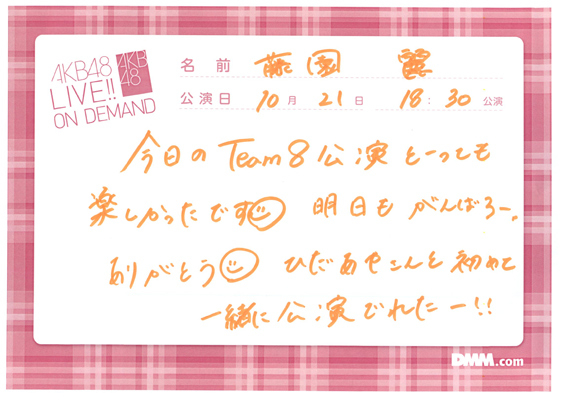 AKB48
LIVE!!
ON DEMAND
AKB
48
名前 藤園 麗
公演日 10月21日 18:30公演
今日のTeam8公演とーっても
楽しかったです☺ 明日も がんばろー。
ありがとう☺ ひだあやさんと初めて
一緒に公演でれたー!!
DMM.com